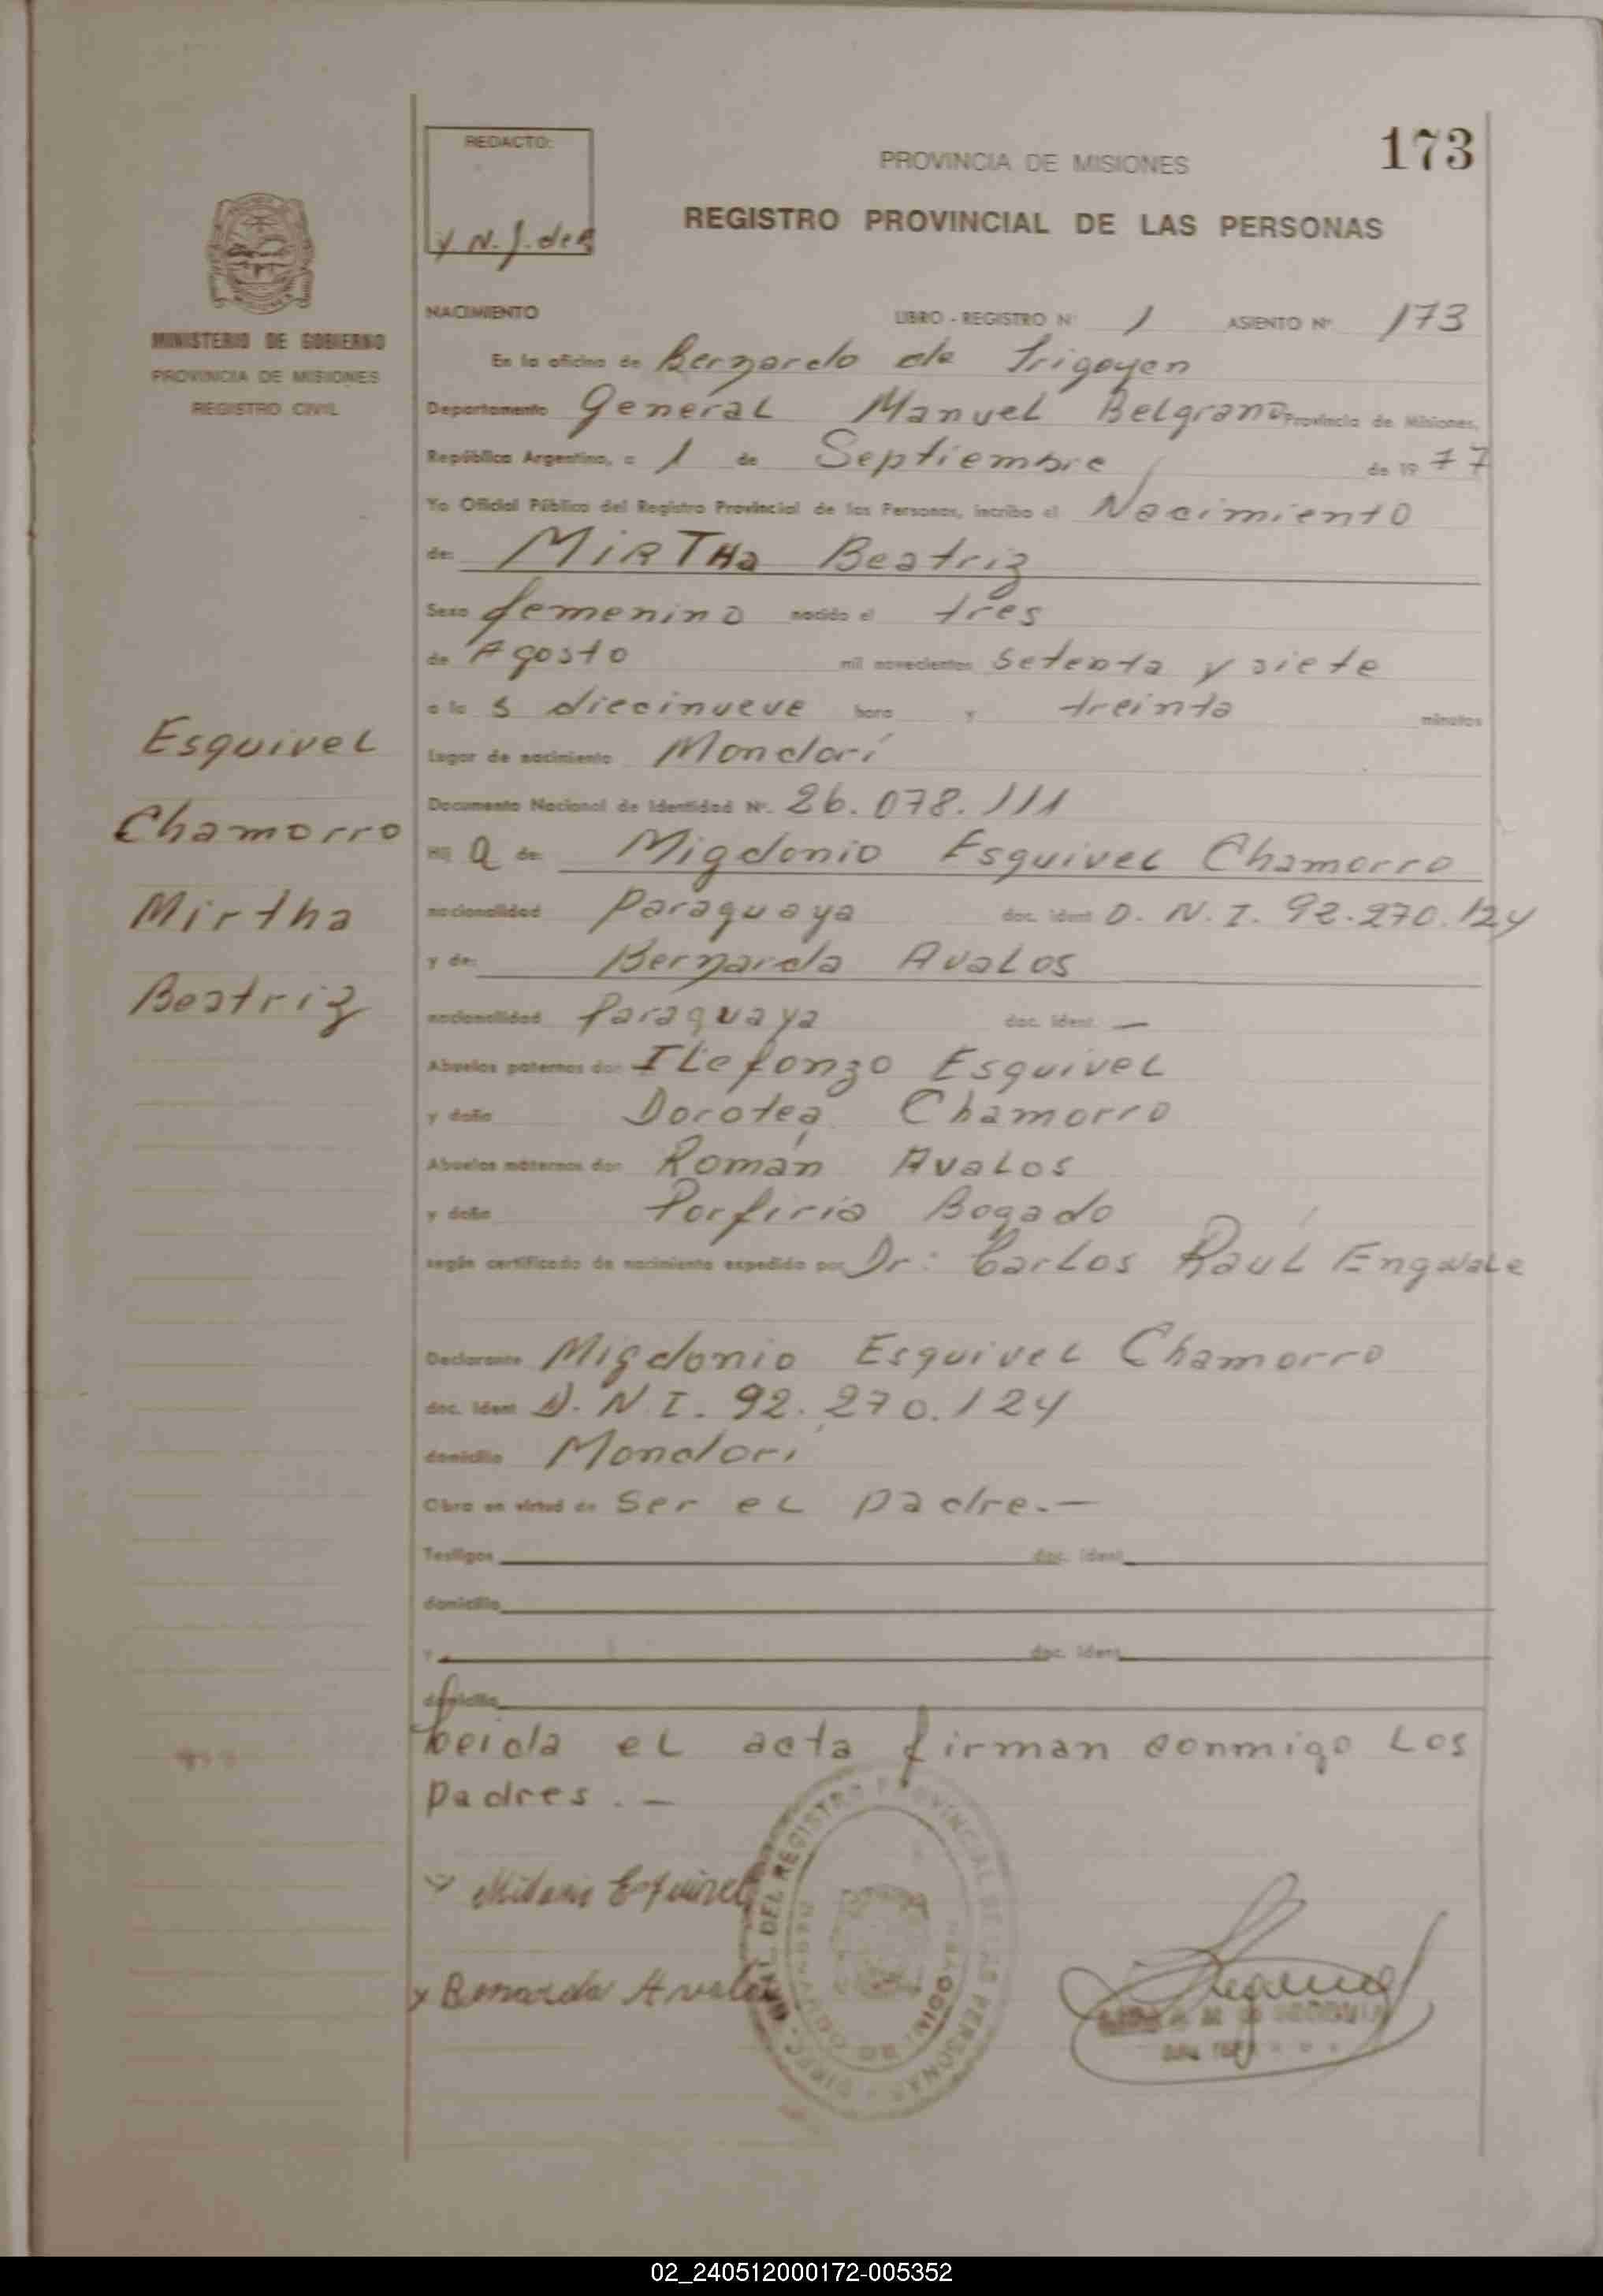 REDACTO:
Y N. J. de B
PROVINCIA DE MISIONES
173
REGISTRO PROVINCIAL DE LAS PERSONAS
MINISTERIO DE GOBIERNO
PROVINCIA DE MISIONES
REGISTRO CIVIL
NACIMIENTO LIBRO - REGISTRO Nº 1 ASIENTO Nº 173
En la oficina de Bernardo de Irigoyen
Departamento General Manuel Belgrano Provincia de Misiones,
República Argentina, a 1 de Septiembre de 19 77
Yo Oficial Público del Registro Provincial de las Personas, inscribo el Nacimiento
de: MiRTHa Beatriz
Sexo femenino nacido el tres
de Agosto mil novecientos setenta y siete
a la s diecinueve hora y treinta minutos
Lugar de nacimiento Mondorí
Documento Nacional de Identidad Nº. 26.078.111
Hij a de: Migdonio Esquivel Chamorro
nacionalidad Paraguaya doc. ident. D.N.I. 92.270.124
y de: Bernarda Avalos
nacionalidad Paraguaya doc. ident. —
Abuelos paternos don Ilefonzo Esquivel
y doña Dorotea Chamorro
Abuelos maternos don Román Avalos
y doña Porfiria Bogado
según certificado de nacimiento expedido por Dr: Carlos Raúl Engwale
Declarante Migdonio Esquivel Chamorro
doc. ident. D.N.I. 92.270.124
domicilio Mondori
Obra en virtud de ser el padre.—
Testigos doc. ident.
domicilio
y doc. ident.
domicilio
Leida el acta firman conmigo los
padres.—
Esquivel
Chamorro
Mirtha
Beatriz
Esquivel
x Bernarda Avalos
DEL REGISTRO PROVINCIAL DE LAS PERSONAS
02_240512000172-005352